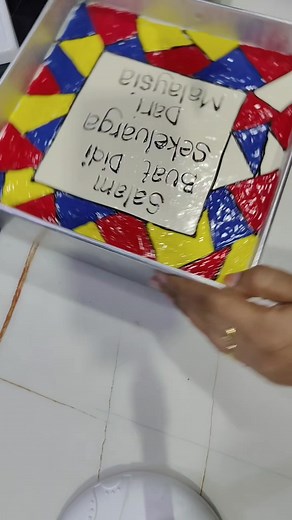 Salam
Buat Didi
Sekeluarga
Dari
Malaysia